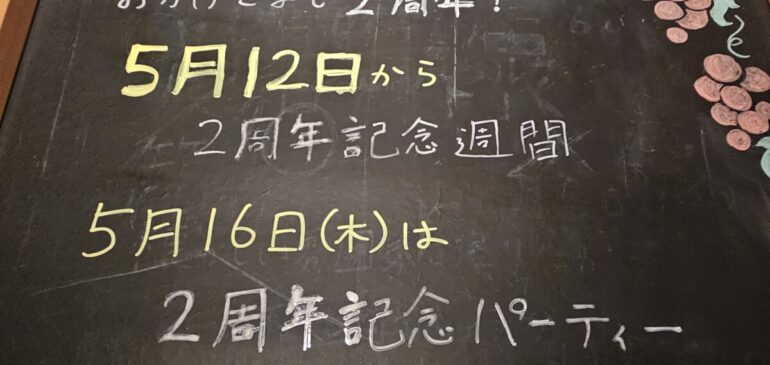 おかげさまで2周年!
5月12日から
2周年記念週間
5月16日(木)は
2周年記念パーティー